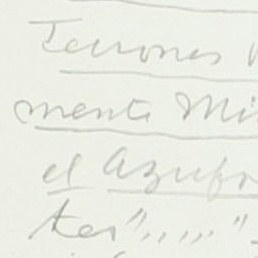 Terrones
mente Mi
el Azufr
tes",,,,"